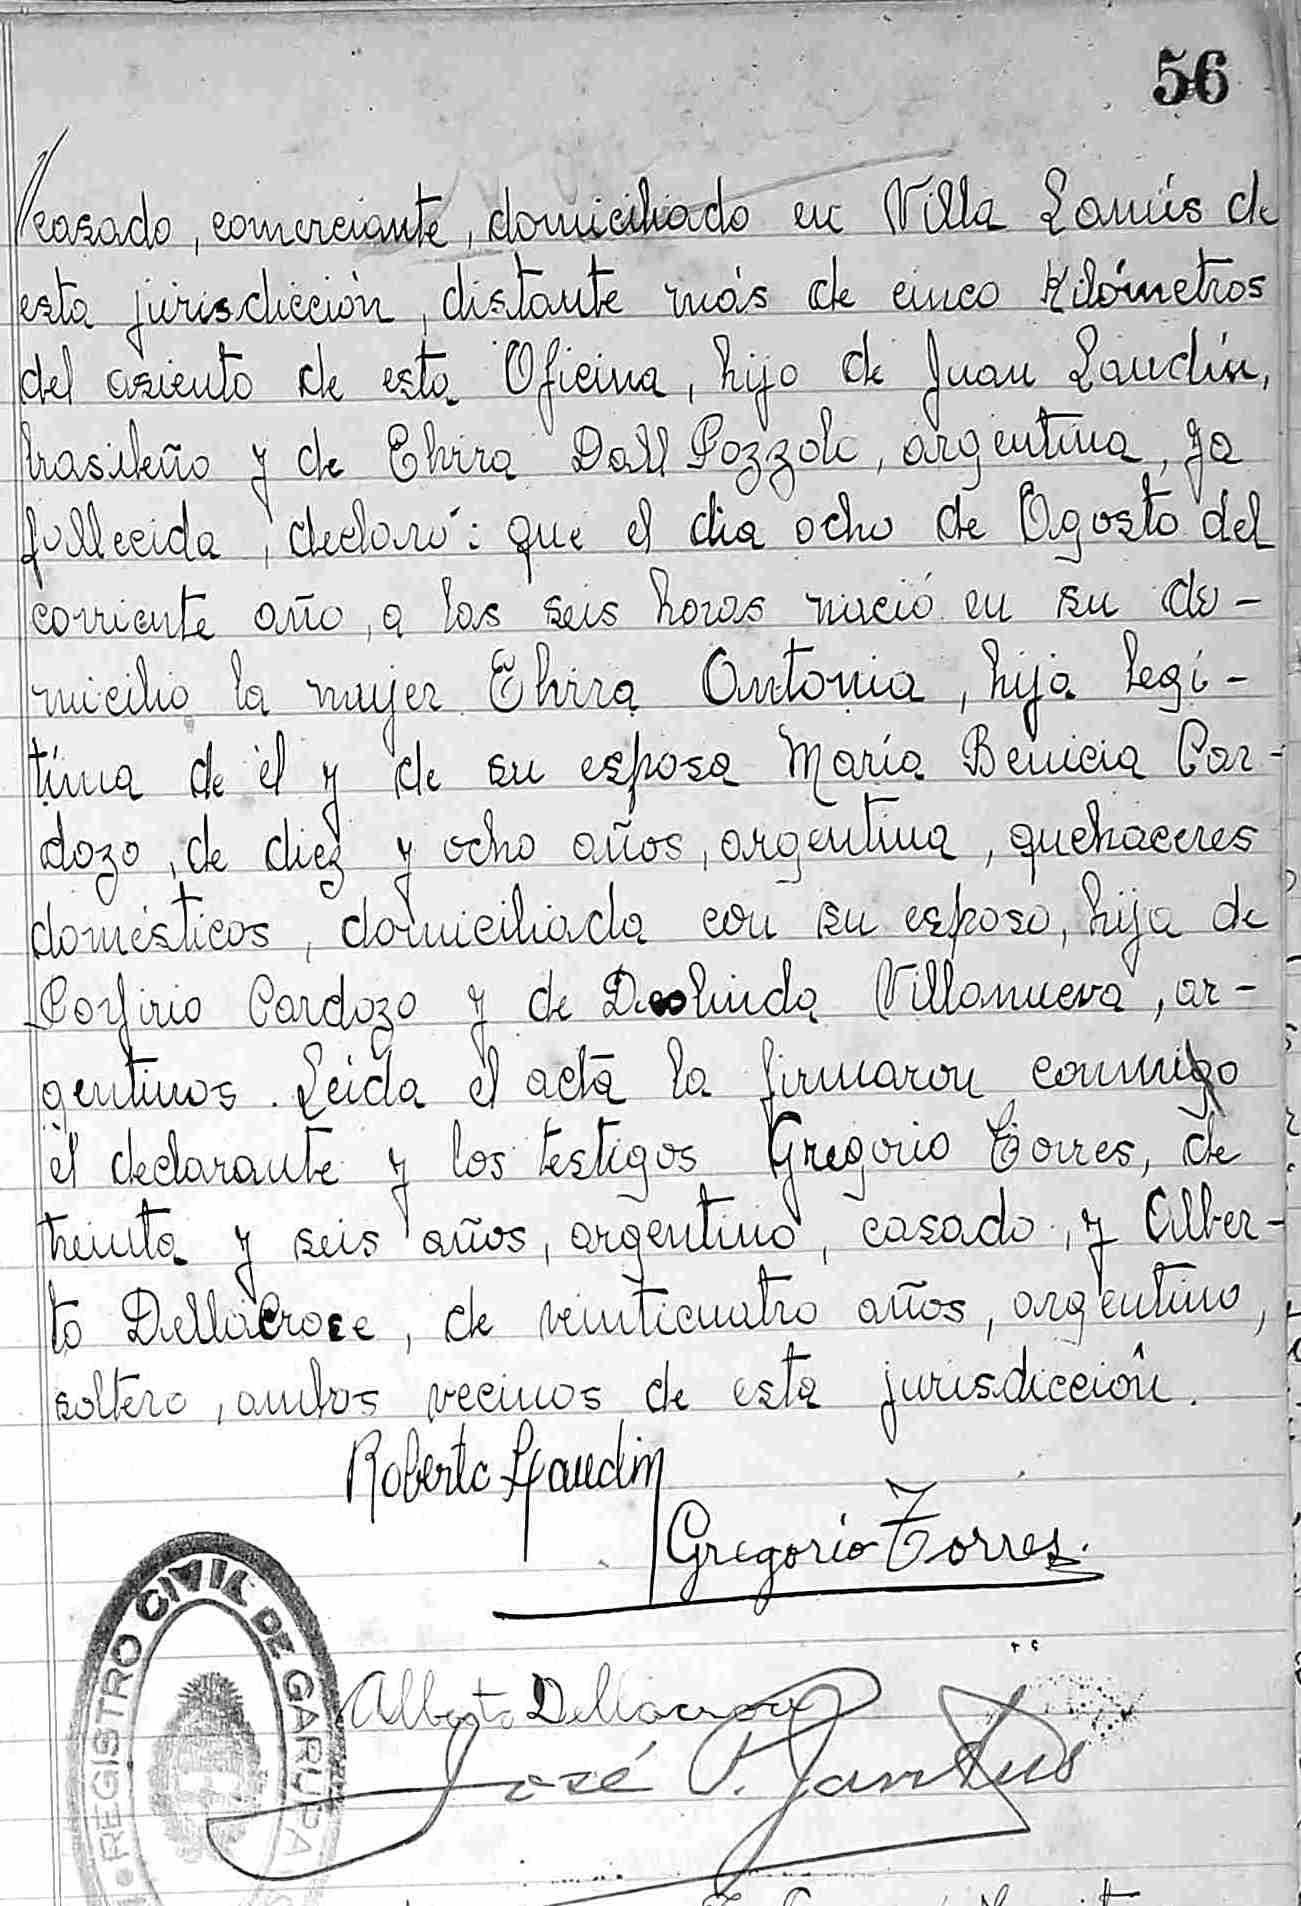 56
casado, comerciante, domiciliado en Villa Lanús de
esta jurisdicción, distante más de cinco Kilómetros
del asiento de esta Oficina, hijo de Juan Landín,
brasileño y de Elvira Dall Pozzolo, argentina, ya
fallecida, declaró: que el dia ocho de Agosto del
corriente año, a las seis horas nació en su do-
micilio la mujer Elvira Antonia, hija legí-
tima de él y de su esposa María Benicia Car-
dozo, de diez y ocho años, argentina, quehaceres
domésticos, domiciliada con su esposo, hija de
Porfirio Cardozo y de Deolinda Villanueva, ar-
gentinos. Leida el acta la firmaron conmigo
el declarante y los testigos Gregorio Torres, de
treinta y seis años, argentino, casado, y Alber-
to Dellacroce, de veinticuatro años, argentino,
soltero, ambos vecinos de esta jurisdicción.
Roberto Landin
Gregorio Torres.
Alberto Dellacroce
José P.
REGISTRO CIVIL DE GARUPA